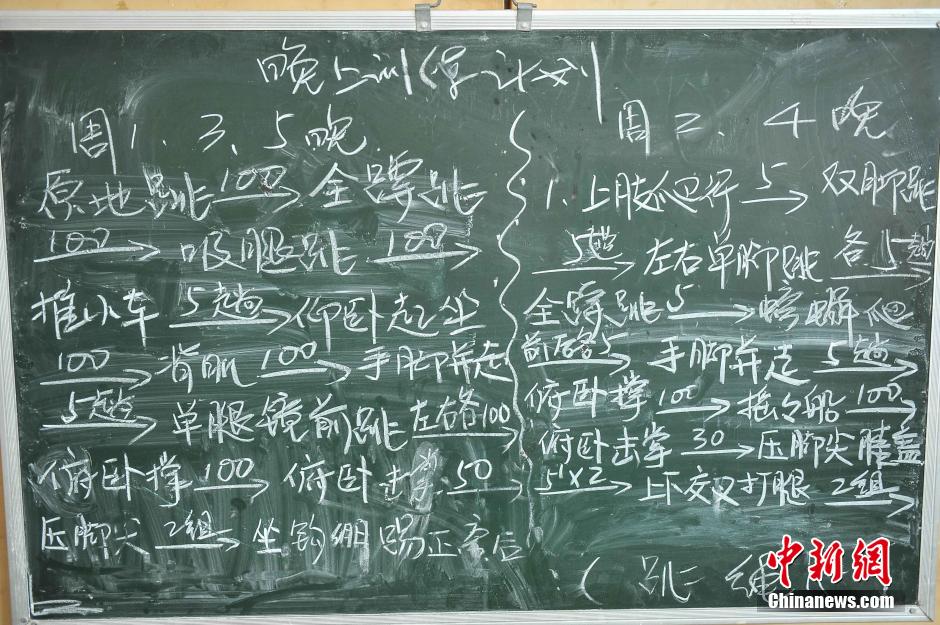 晚上训练计划
周1.3、5晚
原地跳 100 全蹲跳
100 吸腿跳 100
推小车 5趟 仰卧起坐
100 背肌 100 手脚并走
5趟 单腿镜前跳 左右各100
俯卧撑 100 俯卧击掌 50
压脚尖 2组 坐钩绷踢正旁后
周二、4晚
1.上肢爬行 5 双脚跳
5趟 左右单脚跳 各5趟
全蹲跳 5 螃蟹爬
前后各5 手脚并走 5趟
俯卧撑 100 摇々船 100
俯卧击掌 30 压脚尖膝盖
5'×2 上下交叉打腿 2组
(跳绳
中新網
Chinanews.com